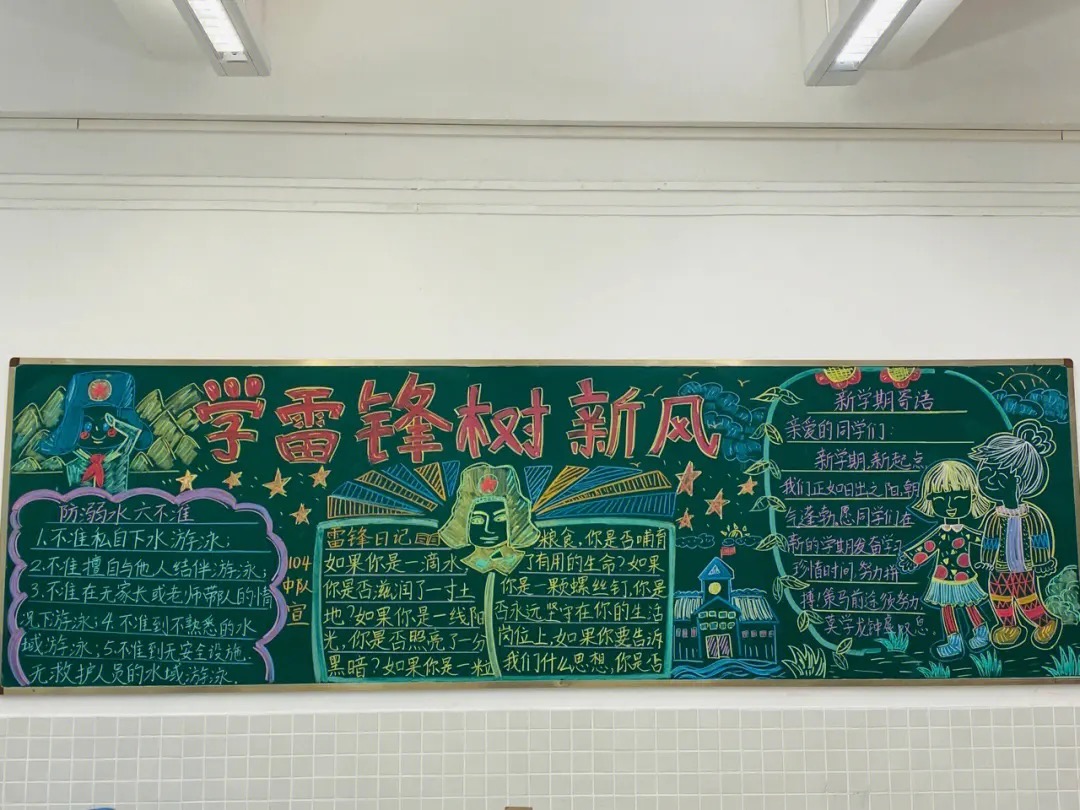 学雷锋树新风
防溺水六不准
1.不准私自下水游泳;
2.不准擅自与他人结伴游泳;
3.不准在无家长或老师带队的情
况下游泳;4.不准到不熟悉的水
域游泳;5.不准到无安全设施.
无救护人员的水域游泳.
104
中队
宣
雷锋日记
如果你是一滴水
你是否滋润了一寸土
地?如果你是一线阳
光,你是否照亮了一分
黑暗?如果你是一粒
粮食,你是否哺育
了有用的生命?如果
你是一颗螺丝钉,你是
否永远坚守在你的生活
岗位上,如果你要告诉
我们什么思想,你是否
新学期寄语
亲爱的同学们:
新学期,新起点
我们正如日出之阳,朝
气蓬勃,愿同学们在
新的学期发奋学习
珍惜时间,努力拼
搏!策马前途须努力,
莫学龙钟虚叹息.